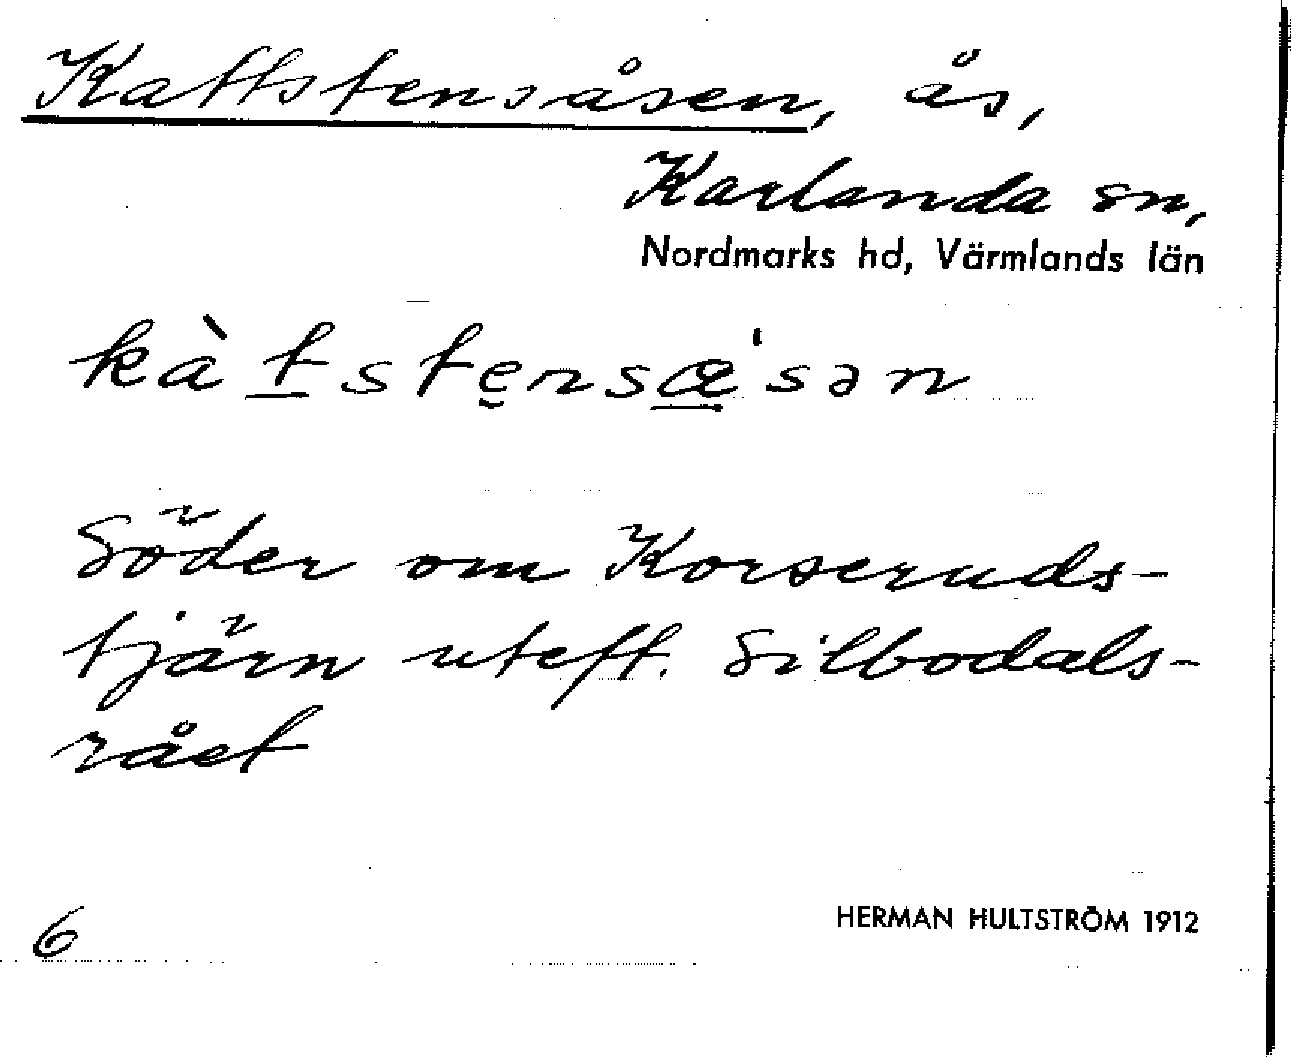 Kattstensåsen, ås,
Karlanda sn,
Nordmarks hd, Värmlands län
kàt̲stęnsæ̲'sən
Söder om Korseruds-
tjärn uteft. Silbodals-
rået
6
HERMAN HULTSTRÖM 1912